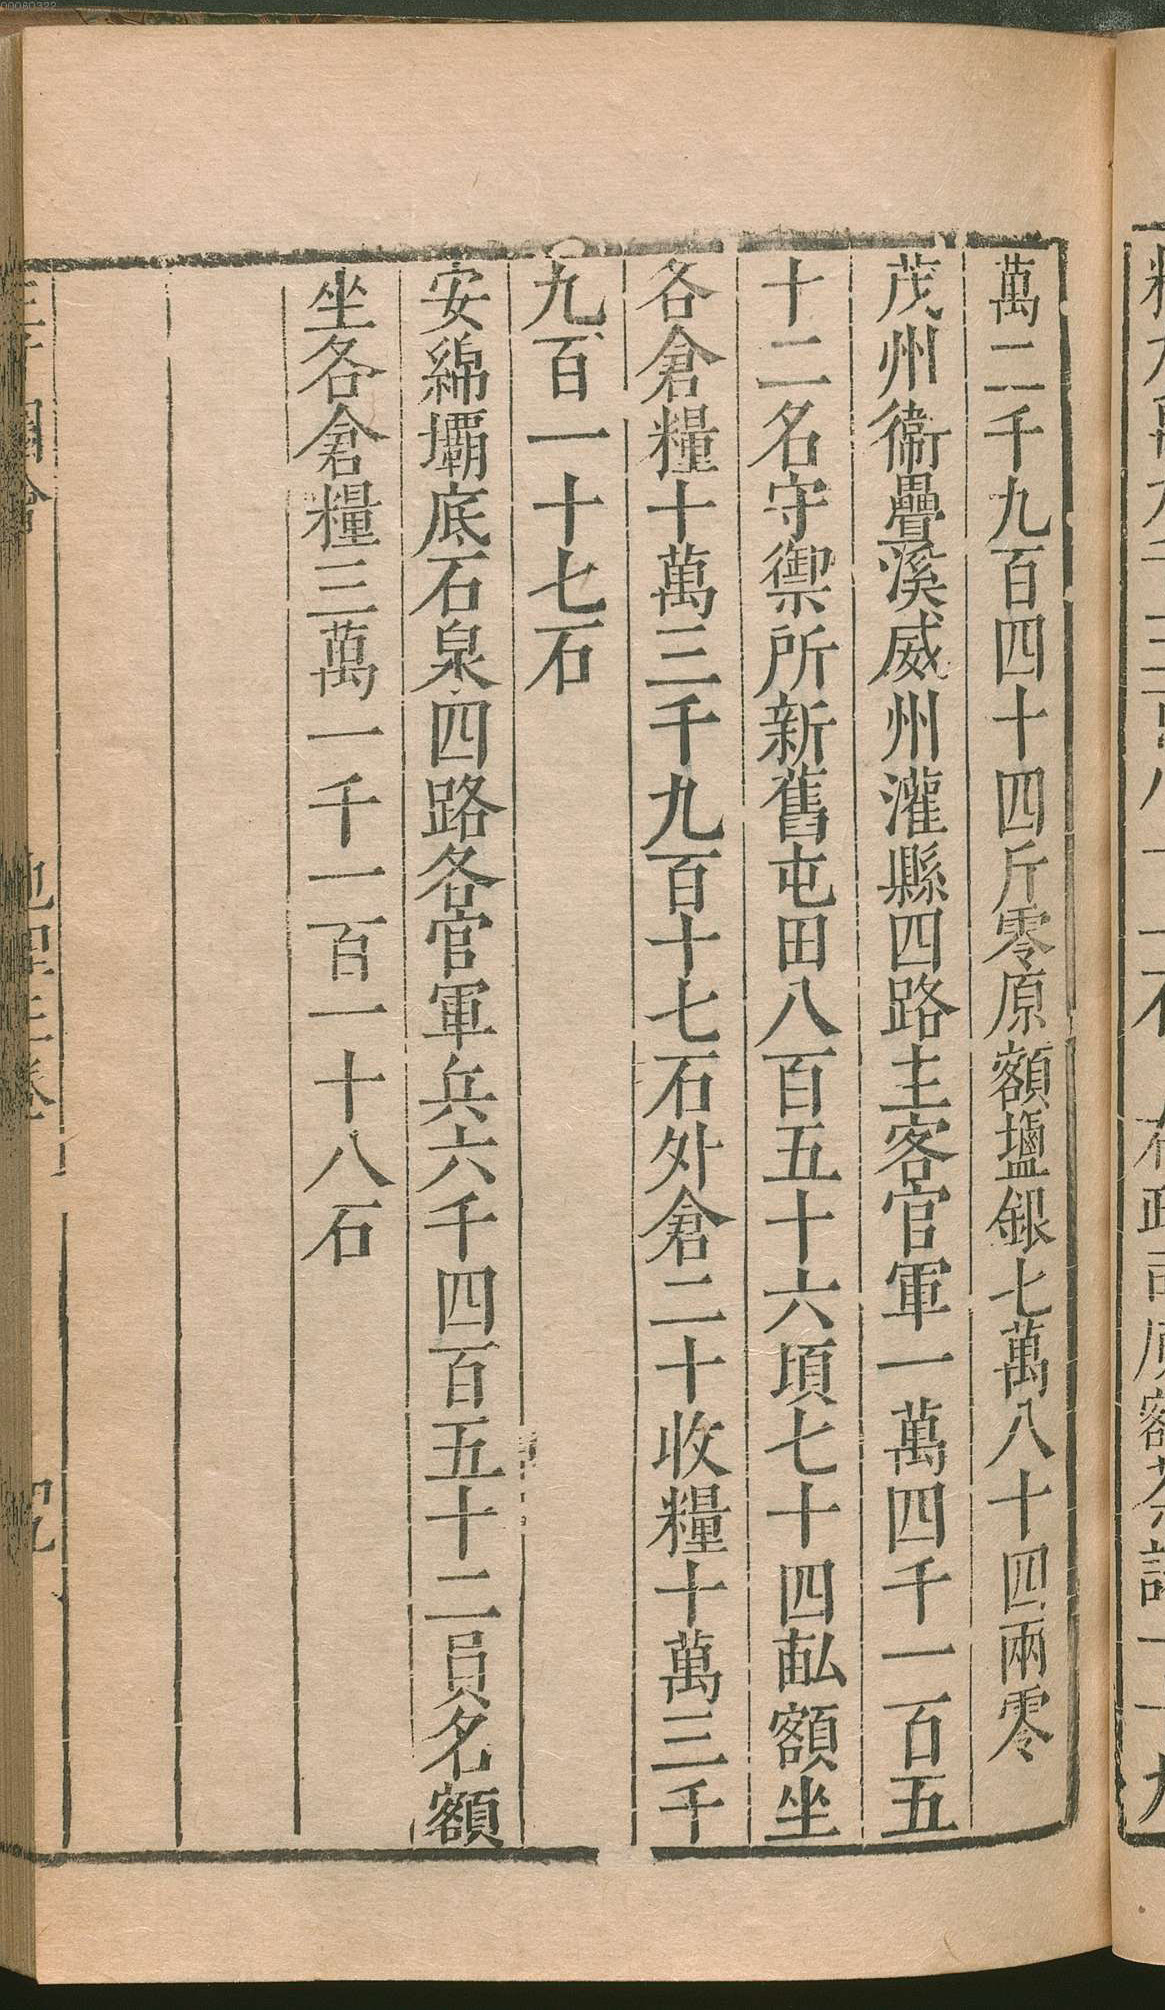 萬二千九百四十四斤零原額鹽銀七萬八十四兩零
茂州衞疊溪威州灌縣四路主客官軍一萬四千一百五
十二名守禦所新舊屯田八百五十六項七十四畝額坐
各倉糧十萬三千九百十七石外倉二十收糧十萬三千
九百一十七石
安綿壩底石泉四路各官軍兵六千四百五十二員名額
坐各倉糧三萬一千一百一十八石
00080322